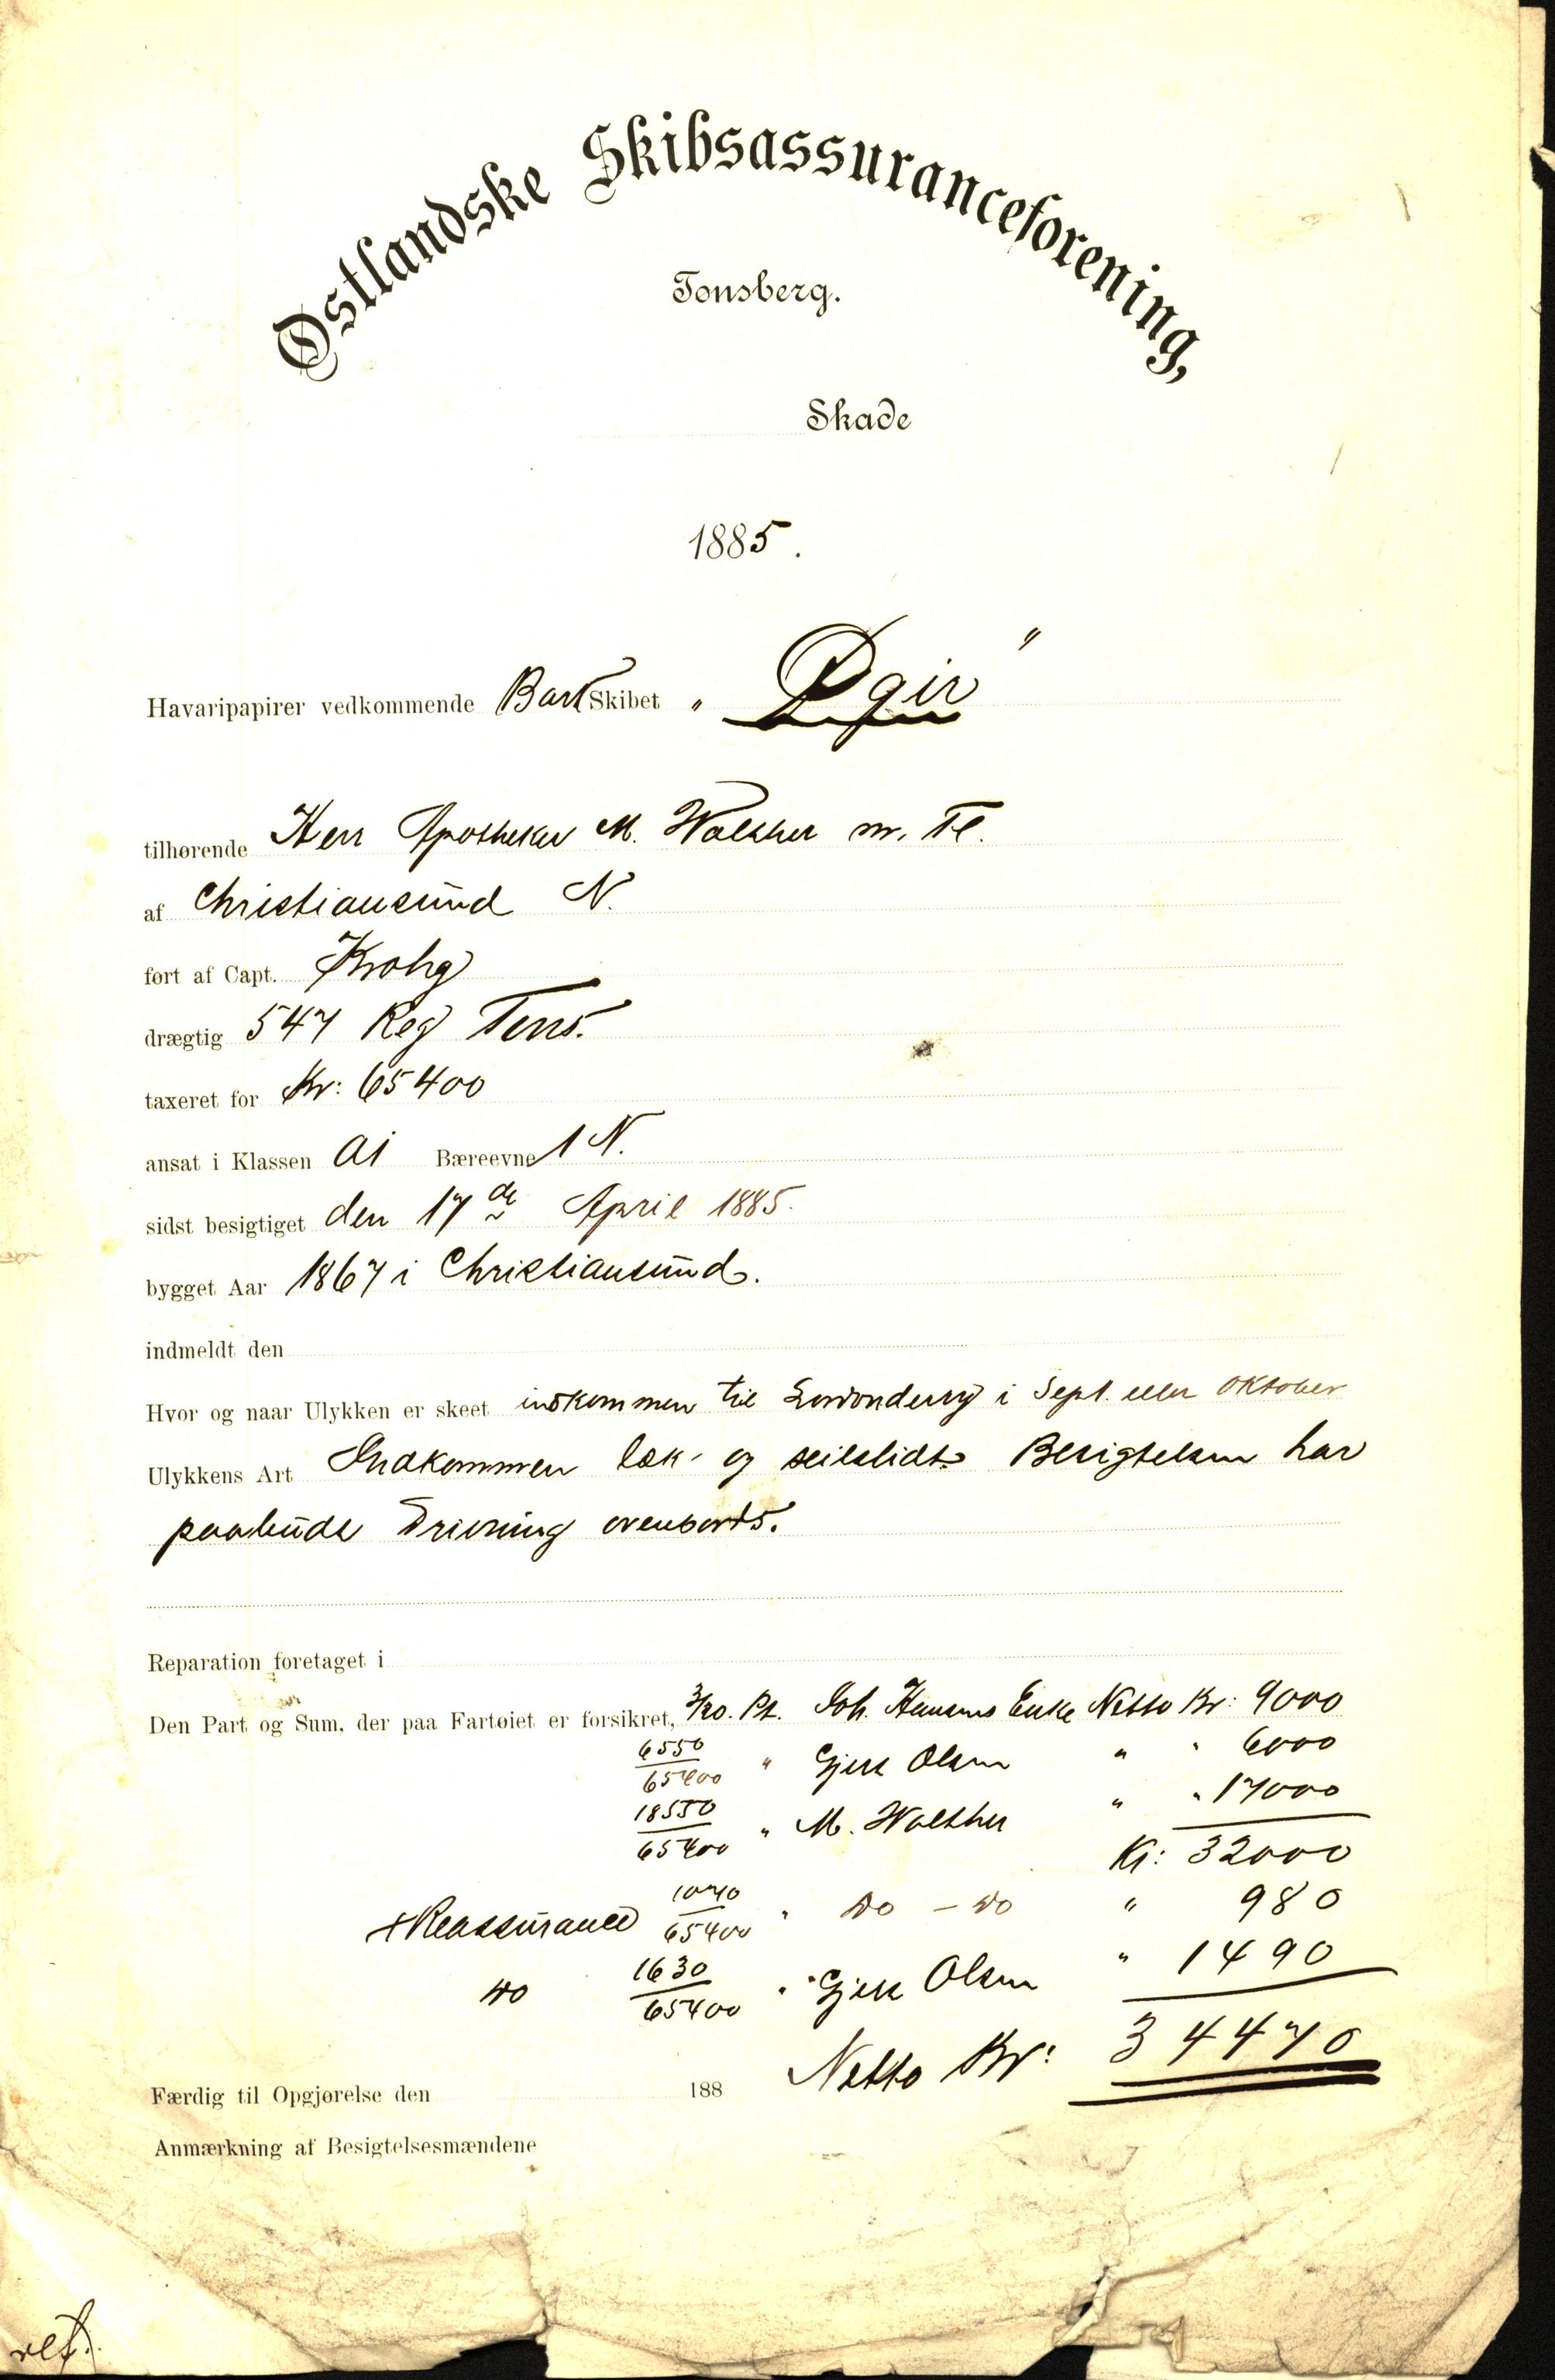 Østlandske Skibsassuranceforening,
Tønsberg.
Skade
1885.
Havaripapirer vedkommende Bark Skibet " Ægir "
tilhørende Herr Apotheker M. Walther m. Fl.
af Christiansund N.
ført af Capt. Krohg
drægtig 547 Reg Tons.
taxeret for Kr: 65400
ansat i Klassen A1 Bæreevne 1 N.
sidst besigtiget den 17de April 1885.
bygget Aar 1867 i Christiansund.
indmeldt den
Hvor og naar Ulykken er skeet indkommen til Londonderry i Sept. eller Oktober
Ulykkens Art Indkommen læk- og seilslidt. Besigtelsen har
paabudt Drivning ovenbords.
Reparation foretaget i
Den Part og Sum, der paa Fartøiet er forsikret, 3/20. Pt. Joh. Hansens Enke Netto Kr: 9000
6550/65400 " Gjert Olsen " " 6000
18550/65400 " M. Walther " " 17000
Kr: 32000
+ Reassurance 1070/65400 " do - do " 980
do 1630/65400 " Gjert Olsen " 1490
Netto Kr: 34470
Færdig til Opgjørelse den 188
Anmærkning af Besigtelsesmændene